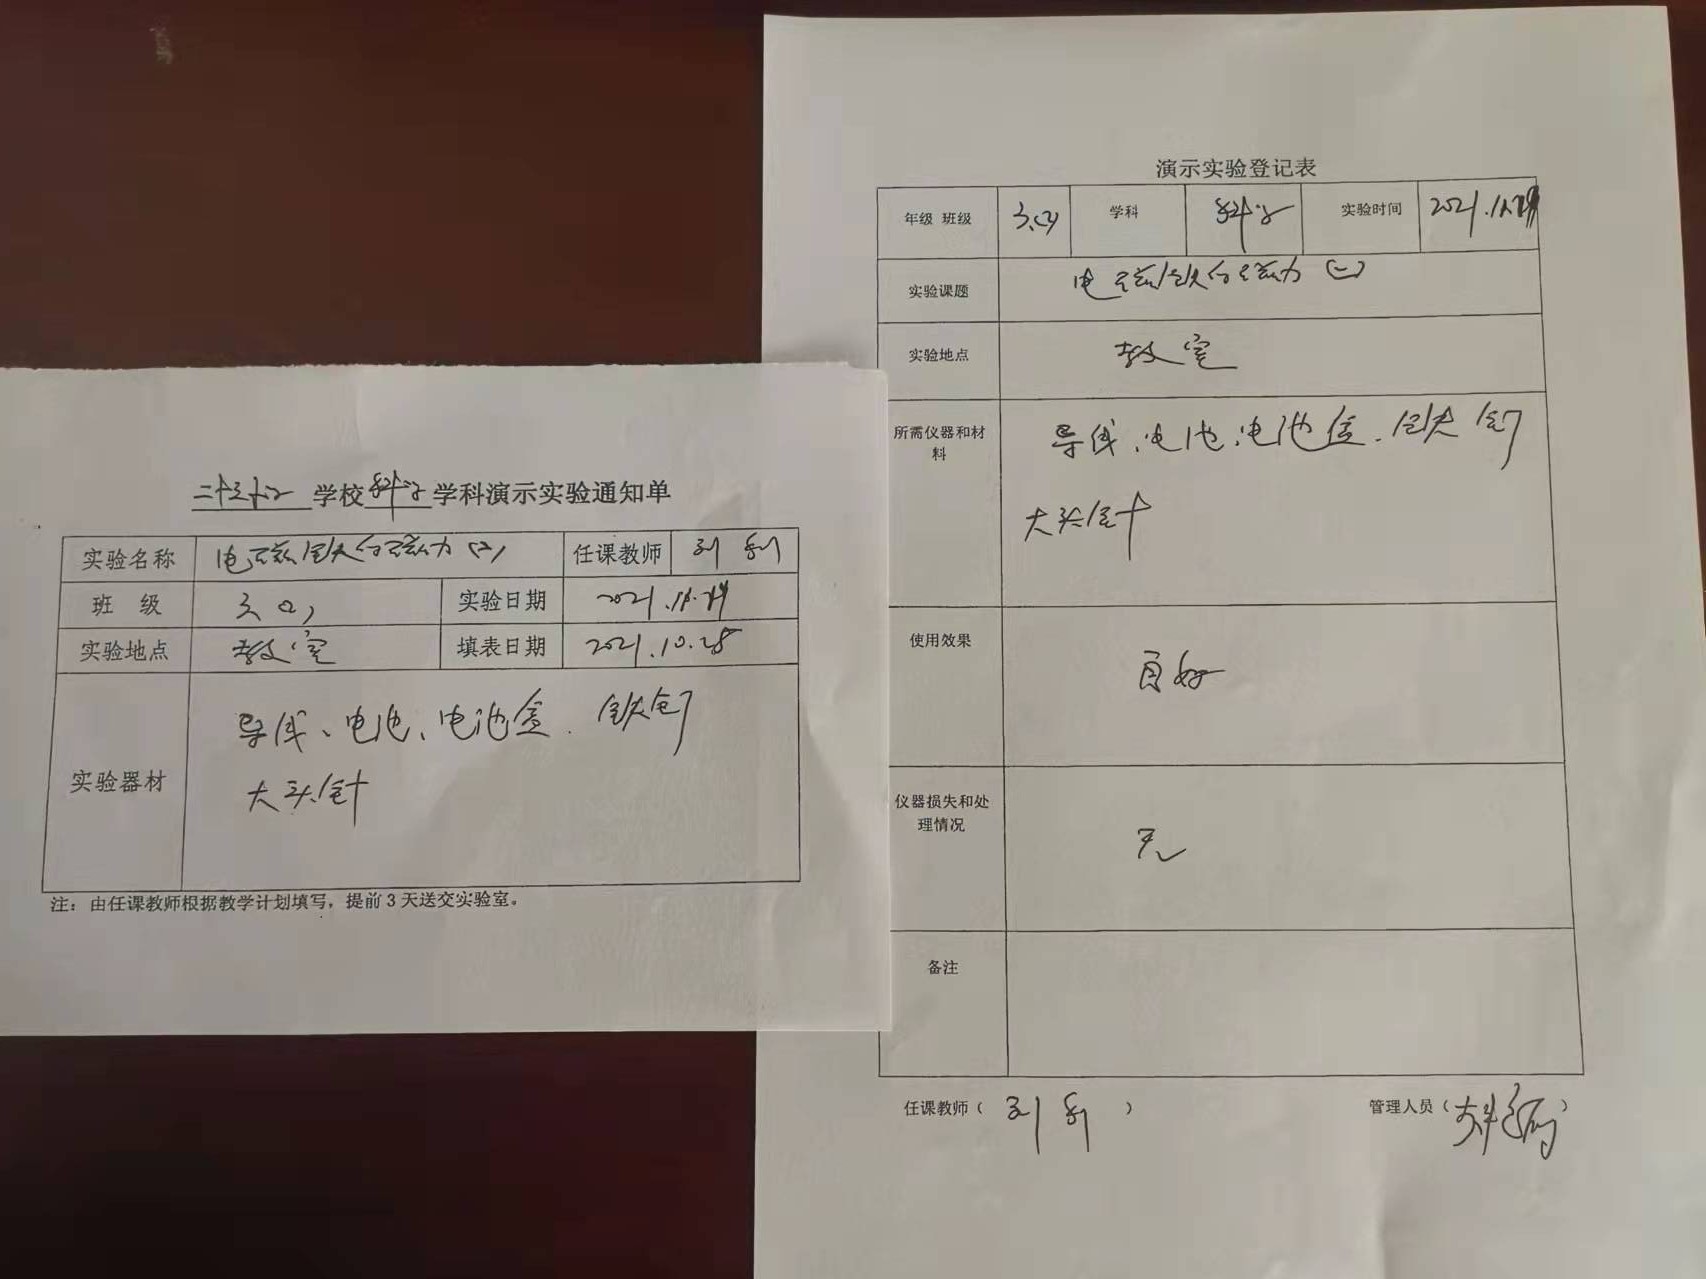 学校 科学 学科演示实验通知单
实验名称 电磁铁的磁力(二) 任课教师 刘
班 级 实验日期
实验地点 教室 填表日期 2021.10.28
实验器材 导线、电池、电池盒、铁钉
大头针
注：由任课教师根据教学计划填写，提前3天送交实验室。
演示实验登记表
年级 班级 学科 科学 实验时间
实验课题 电磁铁的磁力(二)
实验地点 教室
所需仪器和材料 导线、电池、电池盒、铁钉
大头针
使用效果 良好
仪器损失和处理情况 无
备注
任课教师（刘 ） 管理人员（ ）